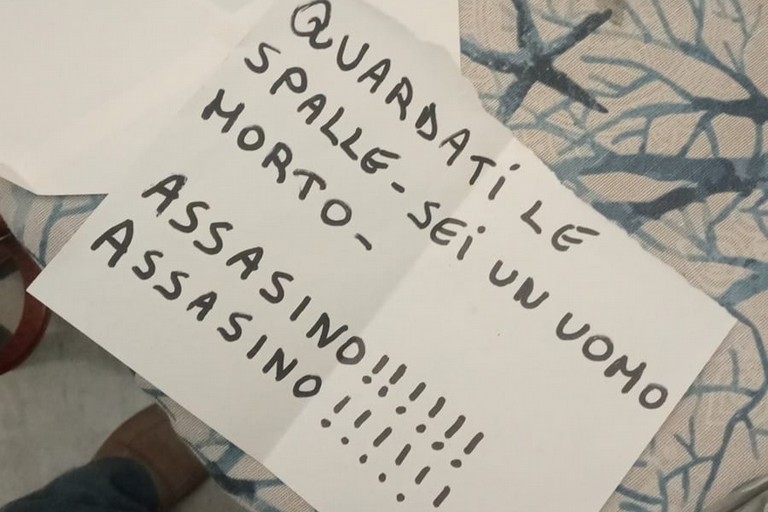 QUARDATI LE
SPALLE-SEI UN UOMO
MORTO-
ASSASINO!!!!!!
ASSASINO!!!!!!